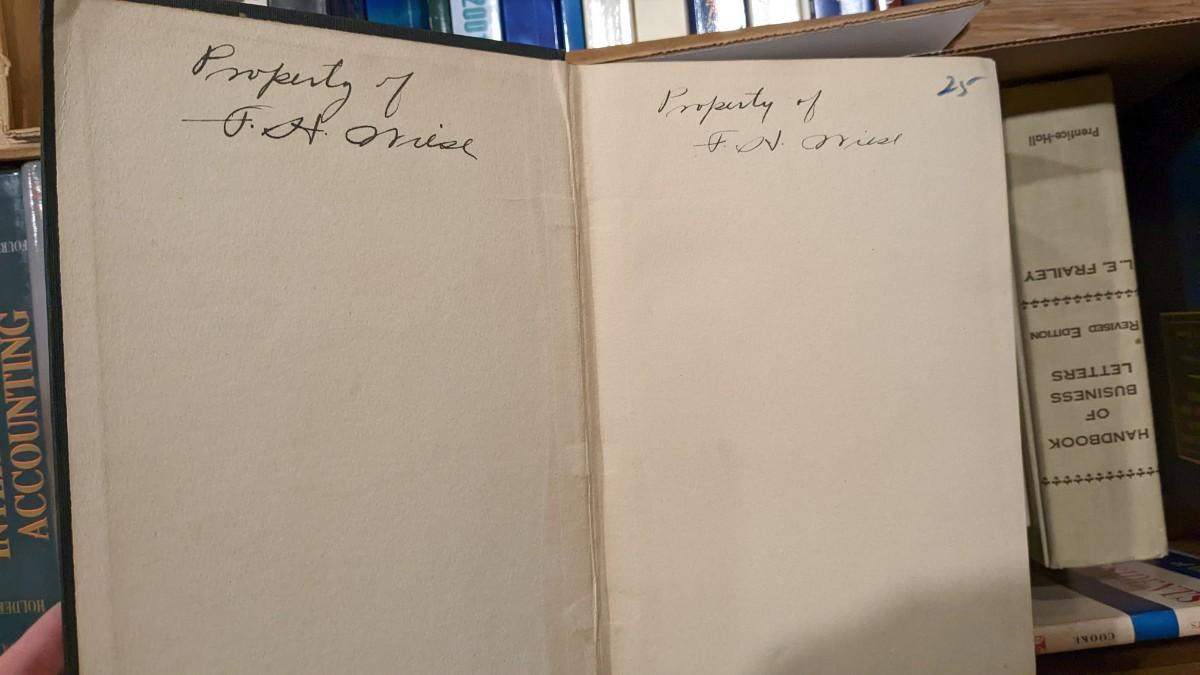 Property of
F. H. Wiese
Property of
F. H. Wiese
25
Prentice-Hall
L.E. FRAILEY
REVISED EDITION
HANDBOOK
OF
BUSINESS
LETTERS
ACCOUNTING
COOKE